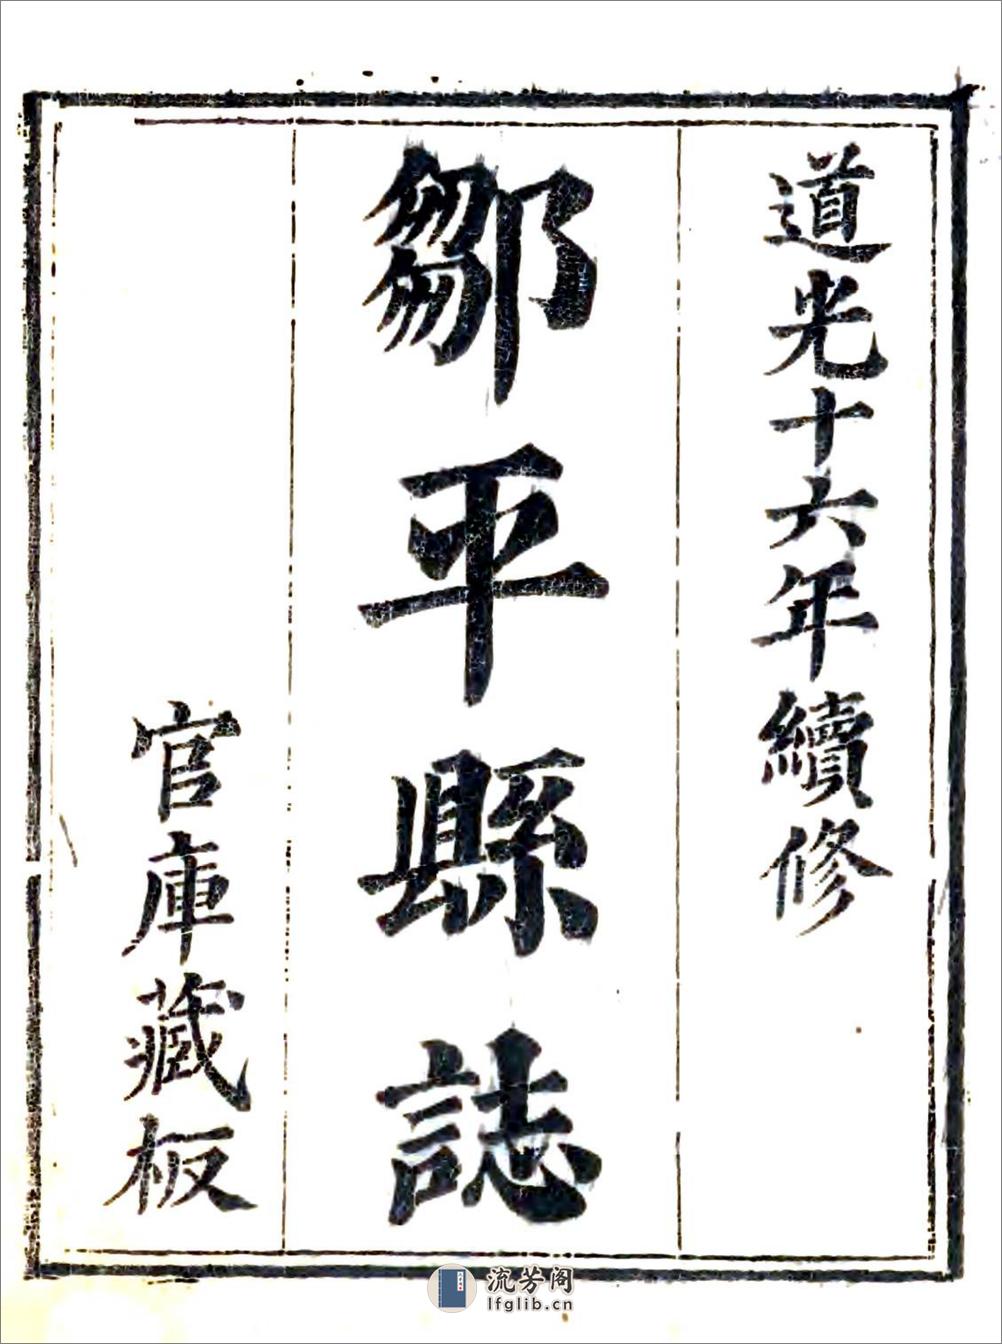 道光十六年續修
鄒平縣誌
官庫藏板
流芳阁
lfglib.cn